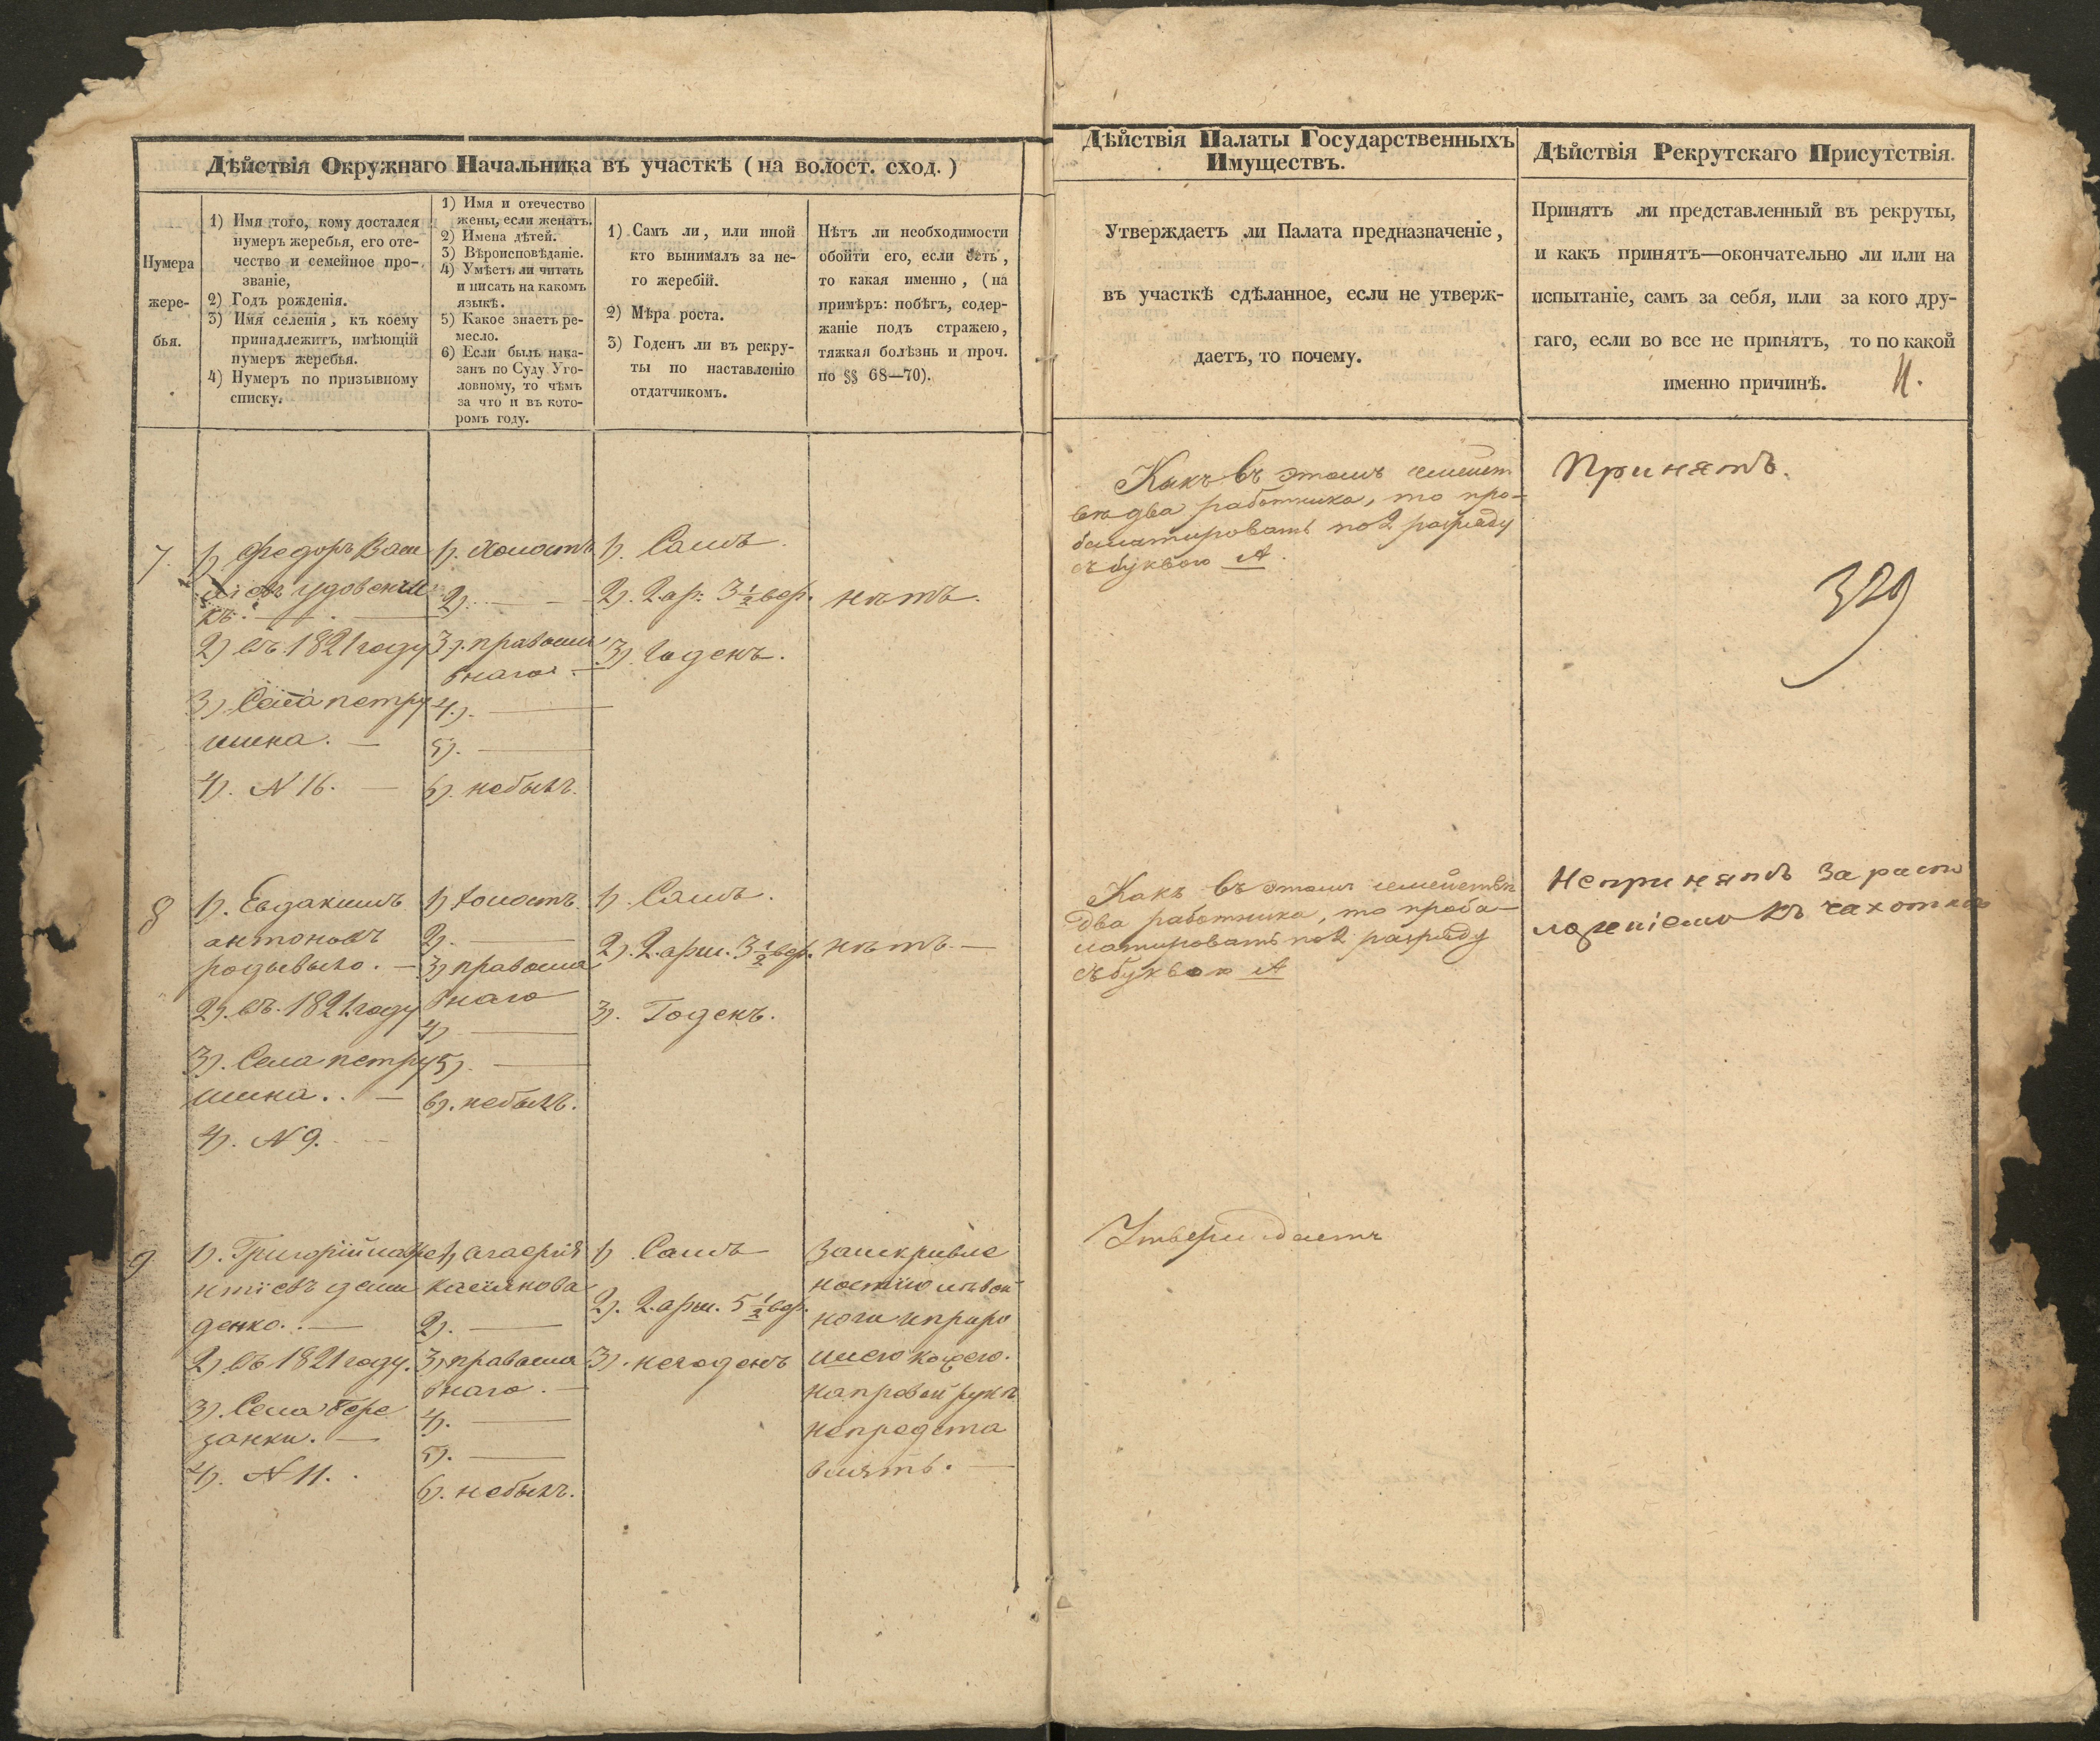 Дѣйствія Окружнаго Начальника въ участкѣ (на волост. сход.)
Нумера
жере-
бья.
1) Имя того, кому достался
нумеръ жеребья, его оте-
чество и семейное про-
званіе,
2) Годъ рожденія.
3) Имя селенія, къ коему
принадлежитъ, имѣющій
нумеръ жеребья.
4) Нумеръ по призывному
списку.
1) Имя и отечество
жены, если женатъ.
2) Имена дѣтей.
3) Вѣроисповѣданіе.
4) Умѣетъ ли читать
и писать на какомъ
языкѣ.
5) Какое знаетъ ре-
месло.
6) Если былъ нака-
занъ по Суду Уго-
ловному, то чѣмъ
за что и въ кото-
ромъ году.
1) Самъ ли, или иной
кто вынималъ за не-
го жеребій.
2) Мѣра роста.
3) Годенъ ли въ рекру-
ты по наставленію
отдатчикомъ.
Нѣтъ ли необходимости
обойти его, если есть,
то какая именно, (на
примѣръ: побѣгъ, содер-
жаніе подъ стражею,
тяжкая болѣзнь и проч.
по §§ 68—70).
Дѣйствія Палаты Государственныхъ
Имуществъ.
Утверждаетъ ли Палата предназначеніе,
въ участкѣ сдѣланное, если не утверж-
даетъ, то почему.
Дѣйствія Рекрутскаго Присутствія.
Принятъ ли представленный въ рекруты,
и какъ принятъ—окончательно ли или на
испытаніе, самъ за себя, или за кого дру-
гаго, если во все не принятъ, то по какой
именно причинѣ.
7.
1) Федоръ Васи
къ.
2) въ 1821 году
3) Села петру
шина.
4). N 16.
1). Холостъ
2).
3). правосла
внаго
4).
5).
6). небылъ.
1). Самъ
2). 2 ар: 3 1/2 вер.
3). Годенъ.
нѣтъ.
Какъ въ этомъ семейст
вѣ два работника, то про-
балатировать по 2 разряду
съ буквою А.
Принятъ.
329
8
1). Евдакимъ
антоновъ
2). въ. 1821 году
3). Села петру
шина.
4). N 9.
1) холостъ.
2).
3) правосла
внаго
4)
5).
6). небылъ.
1) Самъ.
2). 2. арш. 3 1/2 вер.
3). Годенъ.
нѣтъ.
Какъ въ этомъ семействѣ
два работника, то проба-
латировать по 2 разряду
съ буквою А
Непринятъ за распо
ложеніемъ къ чахоткѣ
9
1). Григорій лавре
нтіевъ деми
денко.
2) въ 1821 году.
3). Села Бере
занки.
4). N 11.
1) агафія
касіянова
2).
3) правосла
внаго.
4).
5).
6). небылъ.
1) Самъ
2). 2. арш. 5 1/2 вер.
3). негоденъ
Заискривле
ностію лѣвой
ноги
на правой рукѣ
непредста
влять.
Утверждаетъ